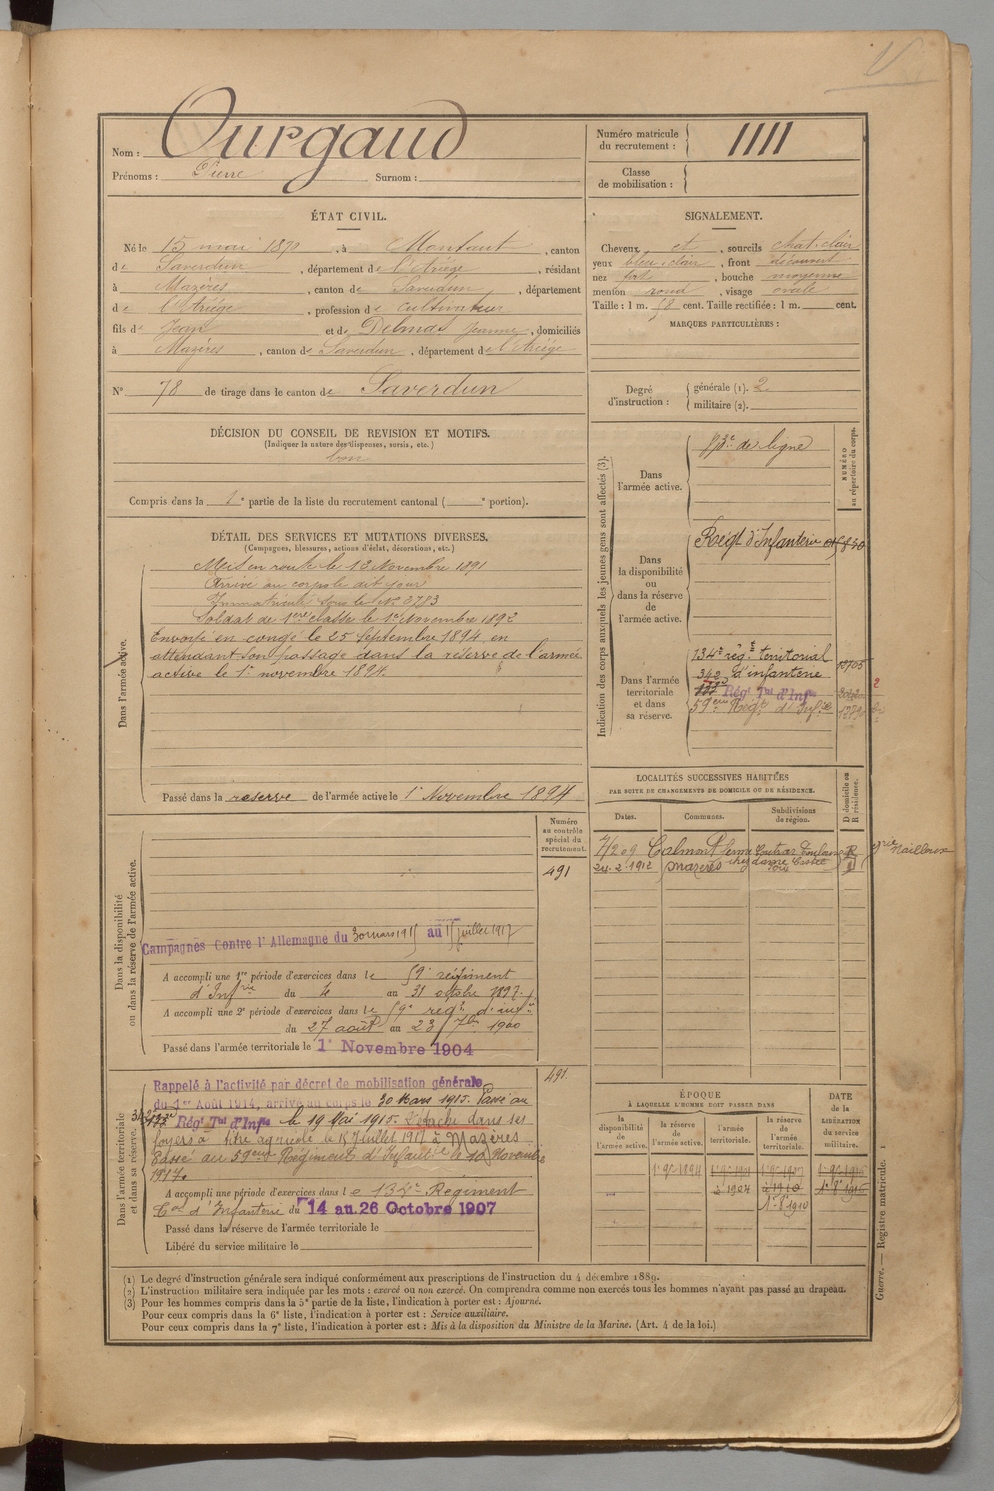 Nom : Ourgaud
Prénoms : Pierre Surnom :
Numéro matricule du recrutement : 1111
Classe de mobilisation :
ÉTAT CIVIL.
Né le 15 mai 1870, à Montaut, canton
de Saverdun, département de l'Ariège, résidant
à Mazères, canton de Saverdun, département
de l'Ariège, profession de cultivateur
fils de Jean et de Delmas Jeanne, domiciliés
à Mazères, canton de Saverdun, département de l'Ariège
N° 78 de tirage dans le canton de Saverdun
SIGNALEMENT.
Cheveux et, sourcils chat. clair
yeux bleu. clair, front découvert
nez fort, bouche moyenne
menton rond, visage ovale
Taille : 1 m. 68 cent. Taille rectifiée : 1 m. cent.
MARQUES PARTICULIÈRES :
Degré d'instruction : générale (1). 2
militaire (2).
DÉCISION DU CONSEIL DE REVISION ET MOTIFS.
(Indiquer la nature des dispenses, sursis, etc.)
bon
Compris dans la 1e partie de la liste du recrutement cantonal ( e portion).
DÉTAIL DES SERVICES ET MUTATIONS DIVERSES.
(Campagnes, blessures, actions d'éclat, décorations, etc.)
Dans l'armée active.
Mis en route le 13 Novembre 1891
Arrivé au corps le dit jour
Immatriculé sous le N° 3783
Soldat de 1ère classe le 1er Novembre 1892
Envoyé en congé le 25 Septembre 1894, en
attendant son passage dans la réserve de l'armée
active le 1er novembre 1894.
Passé dans la reserve de l'armée active le 1er Novembre 1894
Indication des corps auxquels les jeunes gens sont affectés (3).
NUMÉRO au répertoire du corps.
Dans l'armée active.
de ligne
Dans la disponibilité ou dans la réserve de l'armée active.
Régt d'Infanterie
Dans l'armée territoriale et dans sa réserve.
134e régt territorial
342 d'infanterie
Régt Tal d'Infie
59ème Régt d'Infie
LOCALITÉS SUCCESSIVES HABITÉES
PAR SUITE DE CHANGEMENTS DE DOMICILE OU DE RÉSIDENCE.
Dates. Communes. Subdivisions de région. D domicile ou R résidence.
Calmont
24-2-1912 Mazères
Numéro au contrôle spécial du recrutement.
491
Dans la disponibilité ou dans la réserve de l'armée active.
Campagnes Contre l'Allemagne du 30 mars 1915 au 15 juillet 1917
A accompli une 1re période d'exercices dans le 59e régiment
d'Infrie du 4 au 31 octobre 1897.
A accompli une 2e période d'exercices dans le 59e regt d'infie
du 27 août au 23 7bre 1900
Passé dans l'armée territoriale le 1er Novembre 1904
491
Dans l'armée territoriale et dans sa réserve.
Rappelé à l'activité par décret de mobilisation générale
du 1er Août 1914, arrivé au corps le 30 Mars 1915. Passé au
Régt Tal d'Infie le 19 Mai 1915. Détaché dans ses
foyers à titre agricole le 15 Juillet 1917 à Mazères
Passé au 59ème Régiment d'Infanterie le 10 Novembre
1917.
A accompli une période d'exercices dans le 132e Regiment
Tal d'Infanterie du 14 au 26 Octobre 1907
Passé dans la réserve de l'armée territoriale le
Libéré du service militaire le
ÉPOQUE
À LAQUELLE L'HOMME DOIT PASSER DANS
la disponibilité de l'armée active. la réserve de l'armée active. l'armée territoriale. la réserve de l'armée territoriale.
DATE de la LIBÉRATION du service militaire.
(1) Le degré d'instruction générale sera indiqué conformément aux prescriptions de l'instruction du 4 décembre 1889.
(2) L'instruction militaire sera indiquée par les mots : exercé ou non exercé. On comprendra comme non exercés tous les hommes n'ayant pas passé au drapeau.
(3) Pour les hommes compris dans la 5e partie de la liste, l'indication à porter est : Ajourné.
Pour ceux compris dans la 6e liste, l'indication à porter est : Service auxiliaire.
Pour ceux compris dans la 7e liste, l'indication à porter est : Mis à la disposition du Ministre de la Marine. (Art. 4 de la loi.)
Guerre. — Registre matricule.